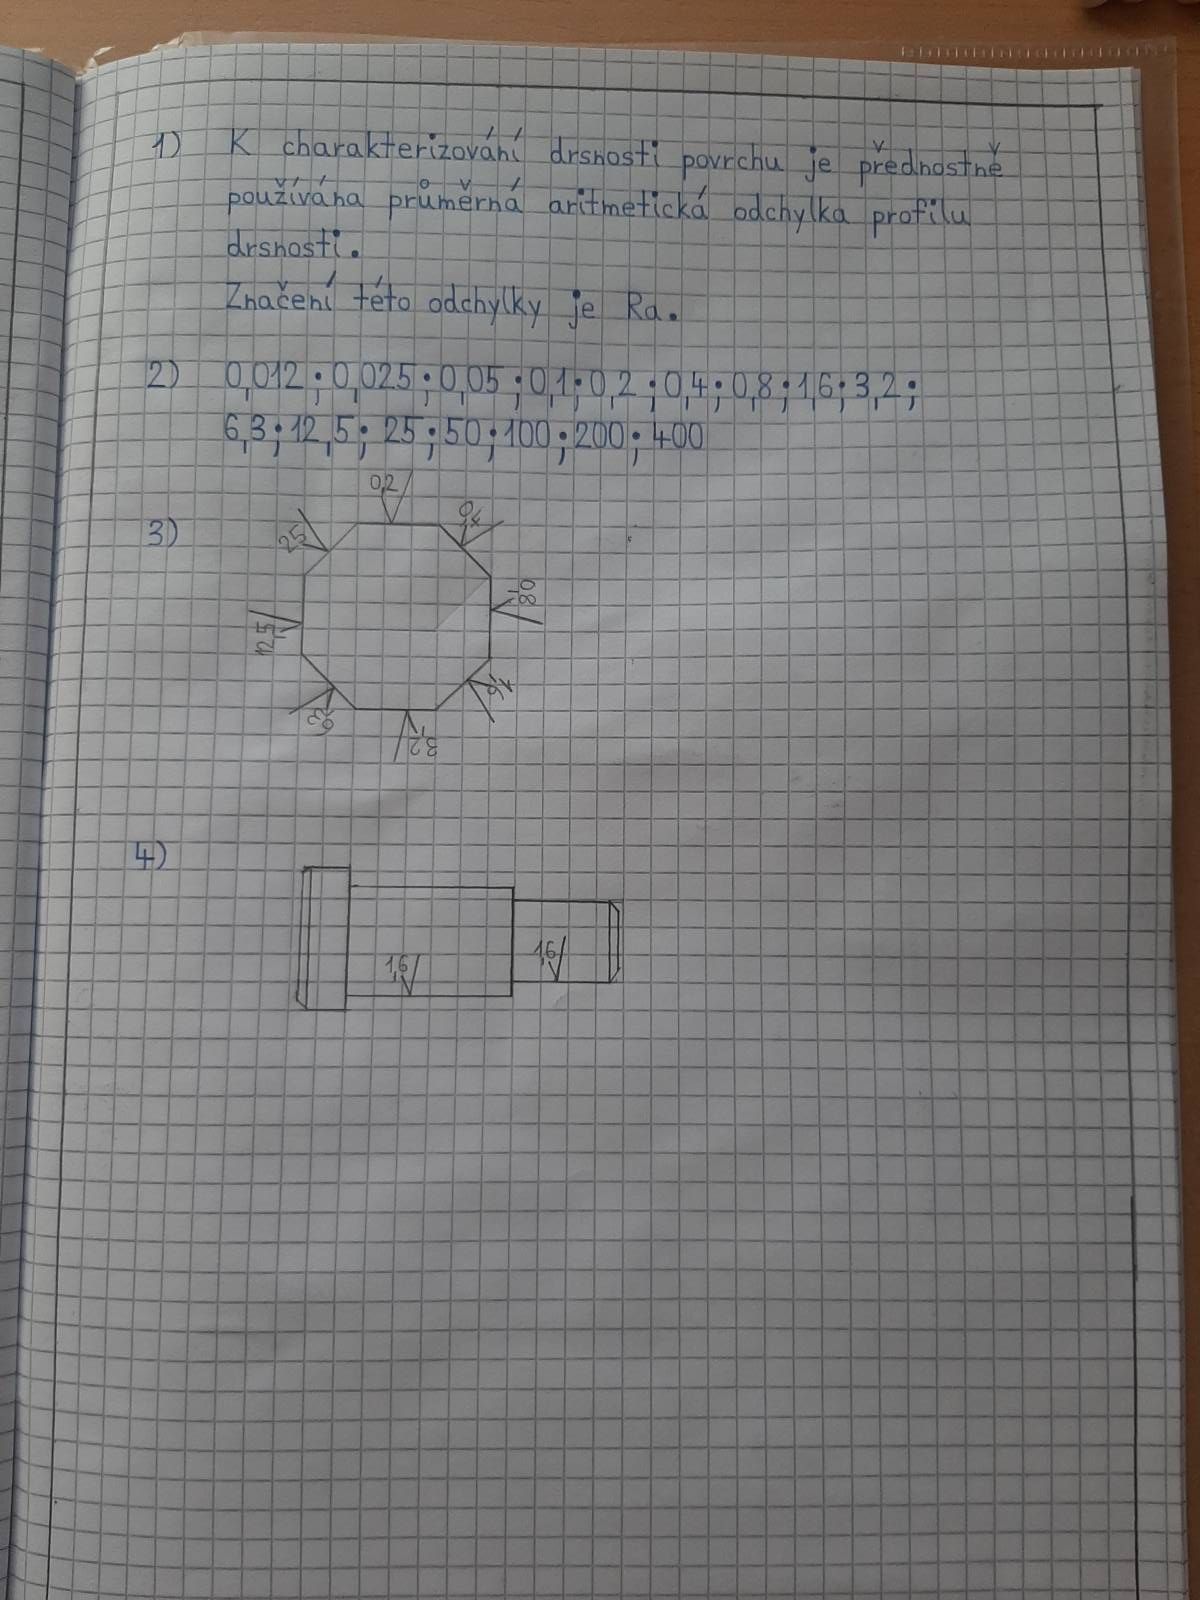 1) K charakterizování drsnosti povrchu je přednostně
používána průměrná aritmetická odchylka profilu
drsnosti.
Značení této odchylky je Ra.
2) 0,012; 0,025; 0,05; 0,1; 0,2; 0,4; 0,8; 1,6; 3,2;
6,3; 12,5; 25; 50; 100; 200; 400
3)
0,2
0,4
0,8
1,6
3,2
6,3
12,5
25
4)
1,6
1,6